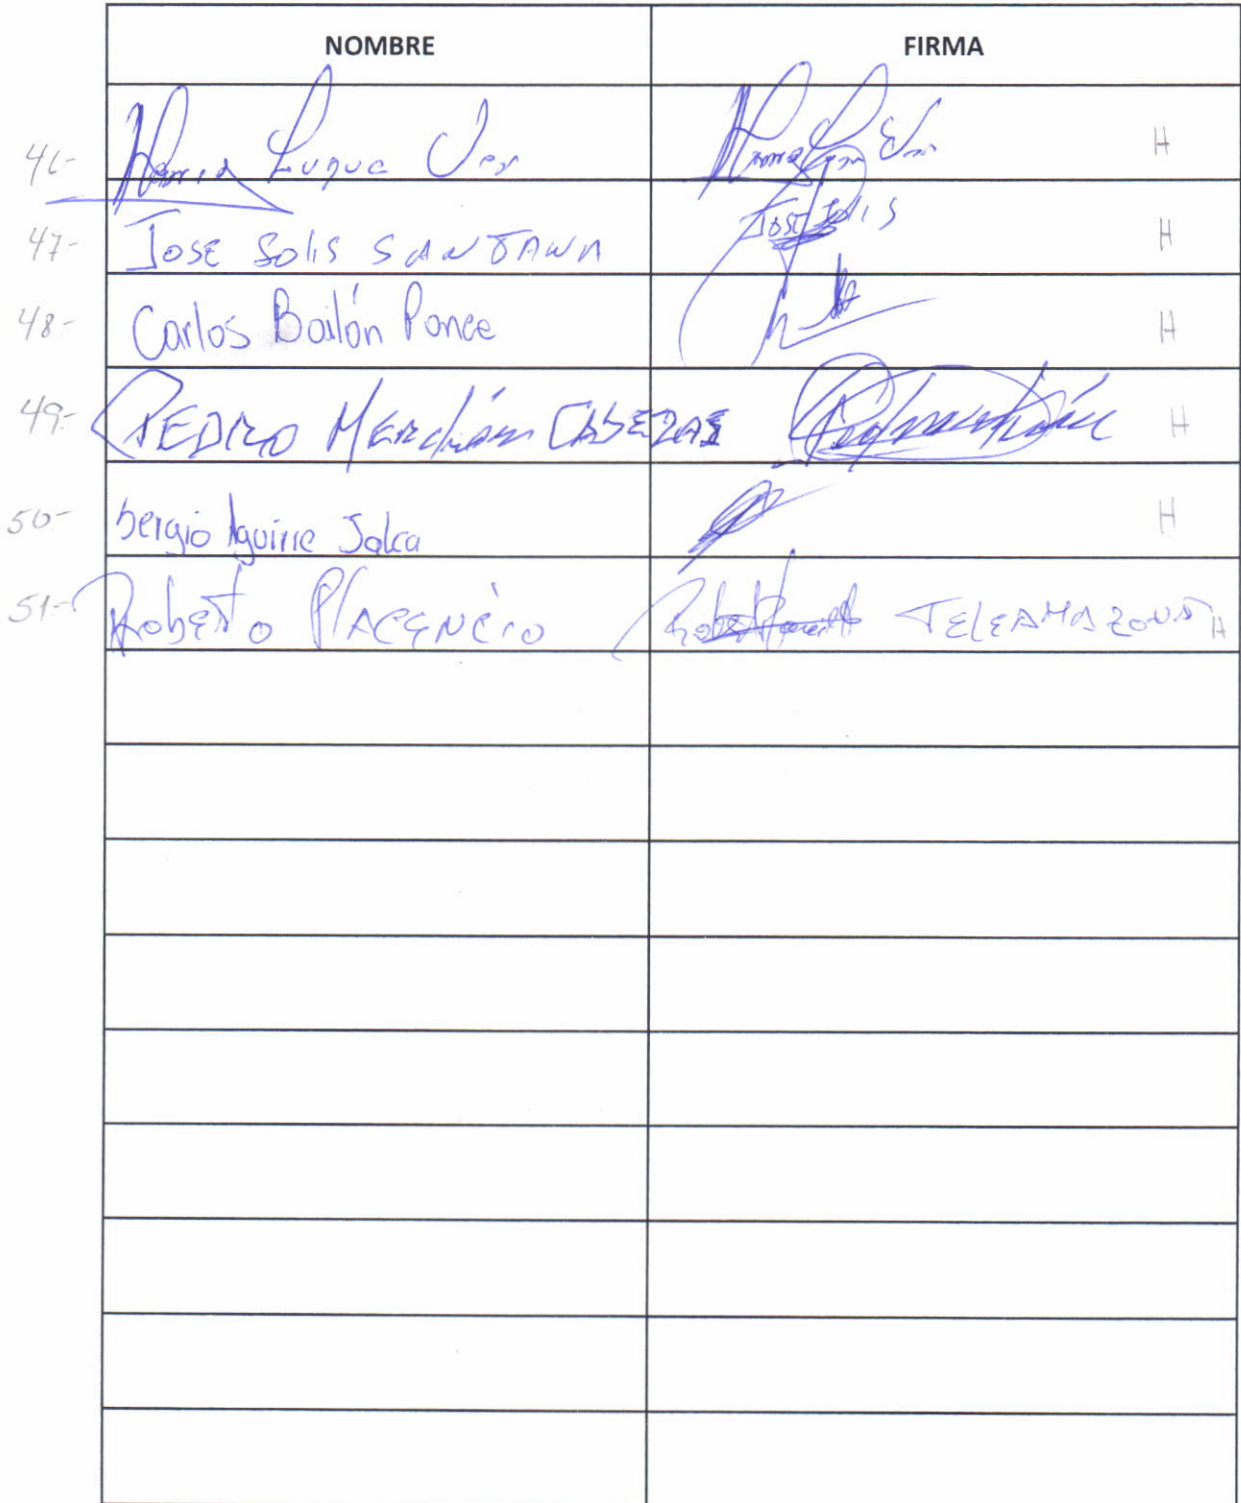 NOMBRE FIRMA
46- Luque H
47- JOSE SOLIS SANTANA JOSE SOLIS H
48- Carlos Bailón Ponce H
49- PEDRO Merchán CABEZAS H
50- Sergio Aguirre Jalca H
51- Roberto PlACENCIO TELEAMAZONAS H